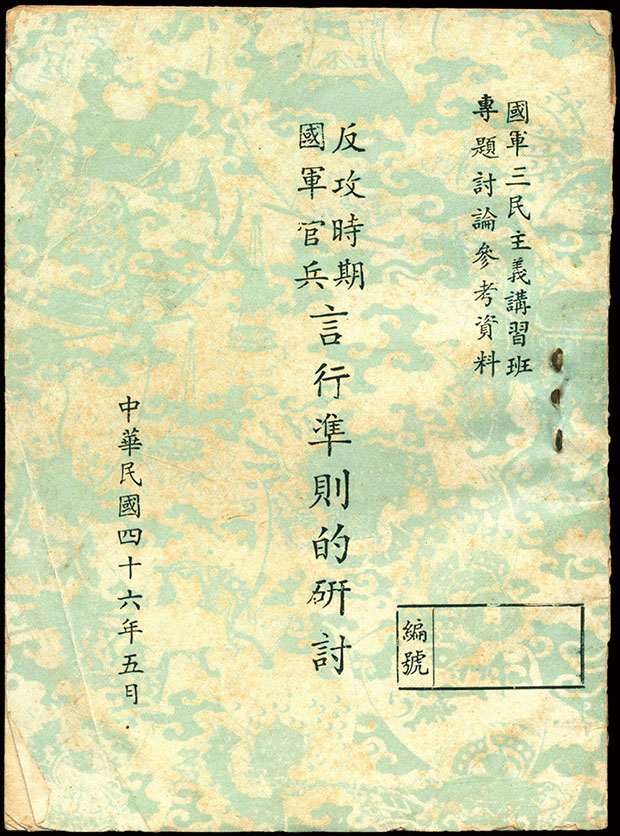 國軍三民主義講習班
專題討論參考資料
反攻時期
國軍官兵
言行準則的研討
中華民國四十六年五月
編號